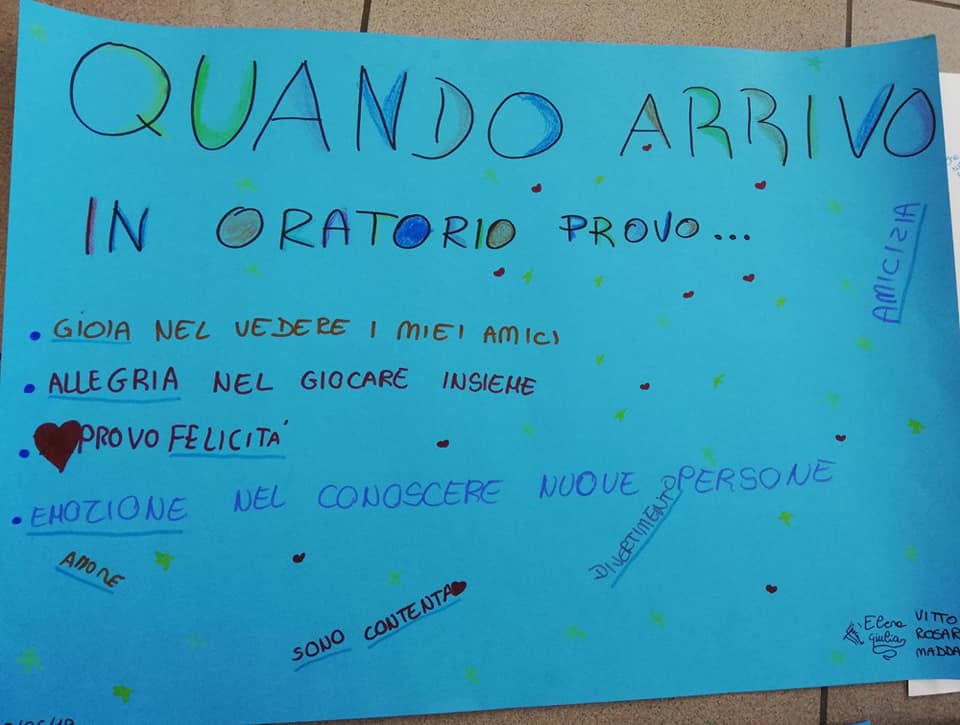 QUANDO ARRIVO
IN ORATORIO PROVO...
AMICIZIA
• GIOIA NEL VEDERE I MIEI AMICI
• ALLEGRIA NEL GIOCARE INSIEME
• PROVO FELICITÀ
• EMOZIONE NEL CONOSCERE NUOVE PERSONE
AMORE
DIVERTIMENTO
SONO CONTENTA
Elena
Giulia
VITTO
ROSAR
MADDA